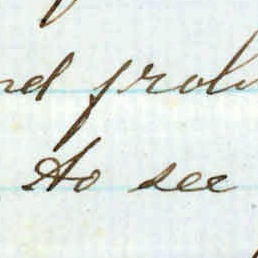 nd prob
to see